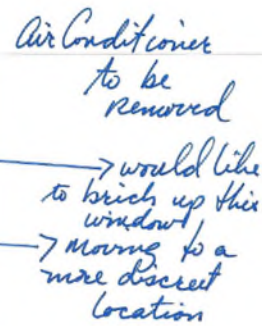 Air Conditioner
to be
Removed
would like
to brick up this
window
moving to a
more discreet
location